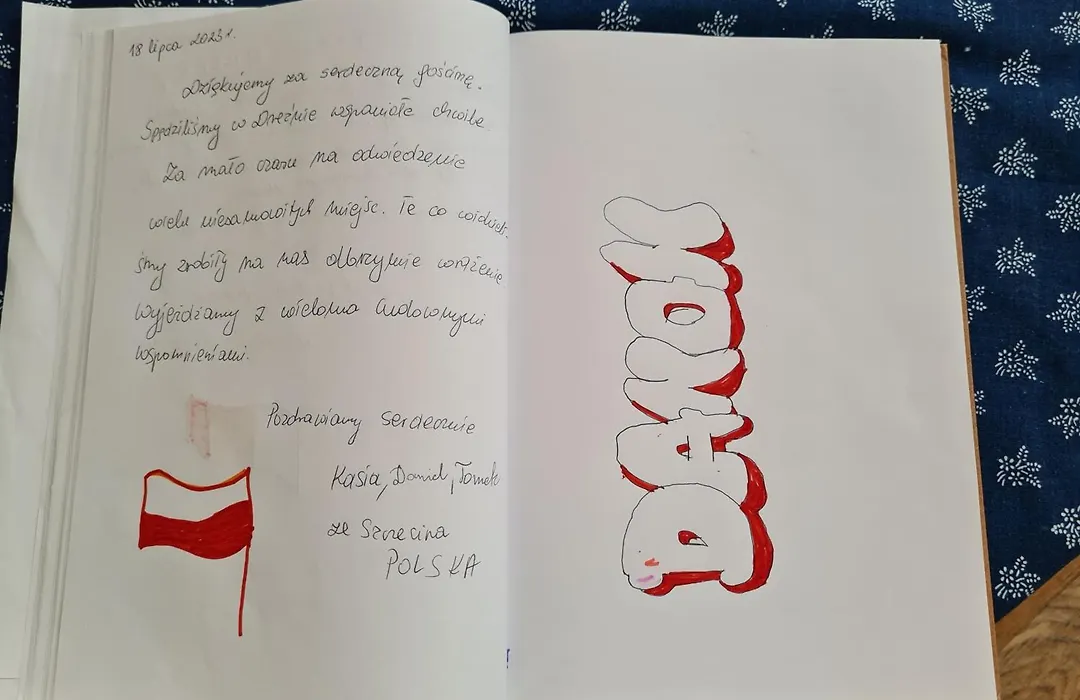 18 lipca 2023r.
Dziękujemy za serdeczną gościnę.
Spędziliśmy w Dreźnie wspaniałe chwile.
Za mało czasu na odwiedzenie
wielu niesamowitych miejsc. Te co widzieli-
śmy zrobiły na nas olbrzymie wrażenie
wyjeżdżamy z wieloma cudownymi
wspomnieniami.
Pozdrawiamy serdecznie
Kasia, Daniel, Tomek
ze Szczecina
POLSKA